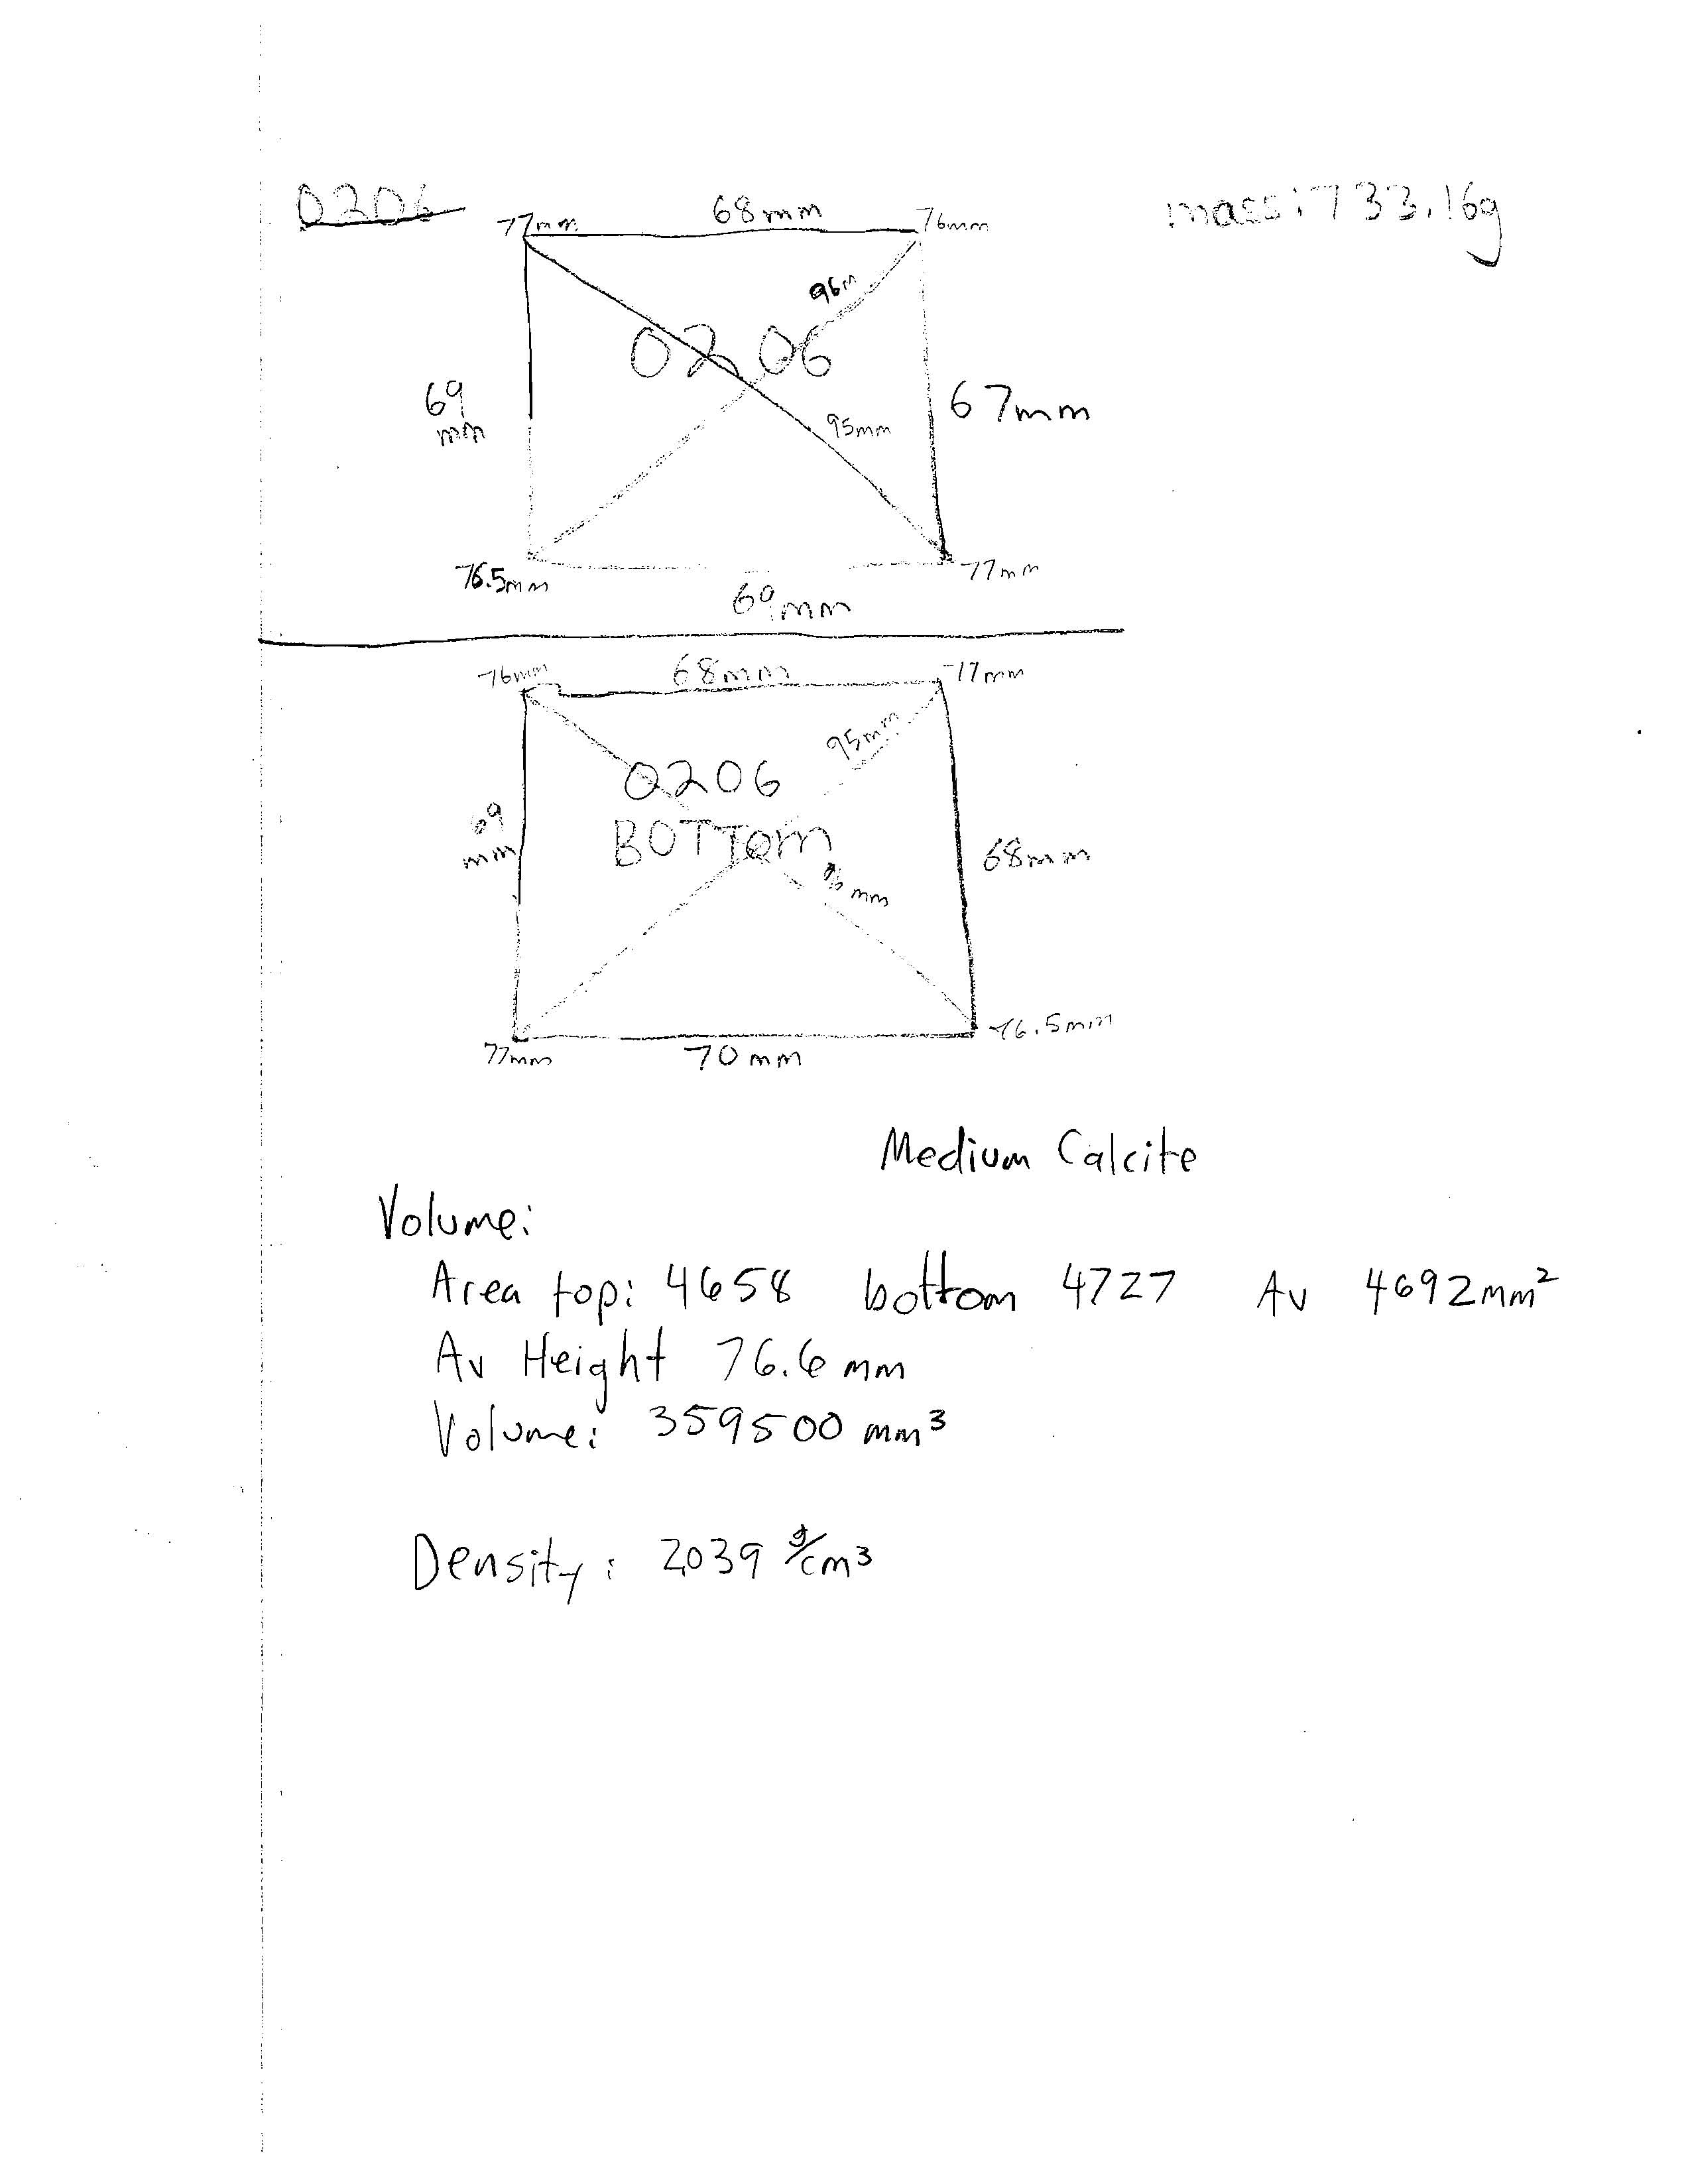 0206
68mm
mass: 733.16g
77mm
76mm
96m
0206
69
mm
67mm
95mm
76.5mm
77mm
69mm
76mm
68mm
77mm
95mm
0206
69
mm
BOTTom
68mm
96 mm
76.5mm
77mm
70mm
Medium Calcite
Volume:
Area top: 4658 bottom 4727 Av 4692mm²
Av Height 76.6 mm
Volume: 359500 mm³
Density: 2.039 g/cm³